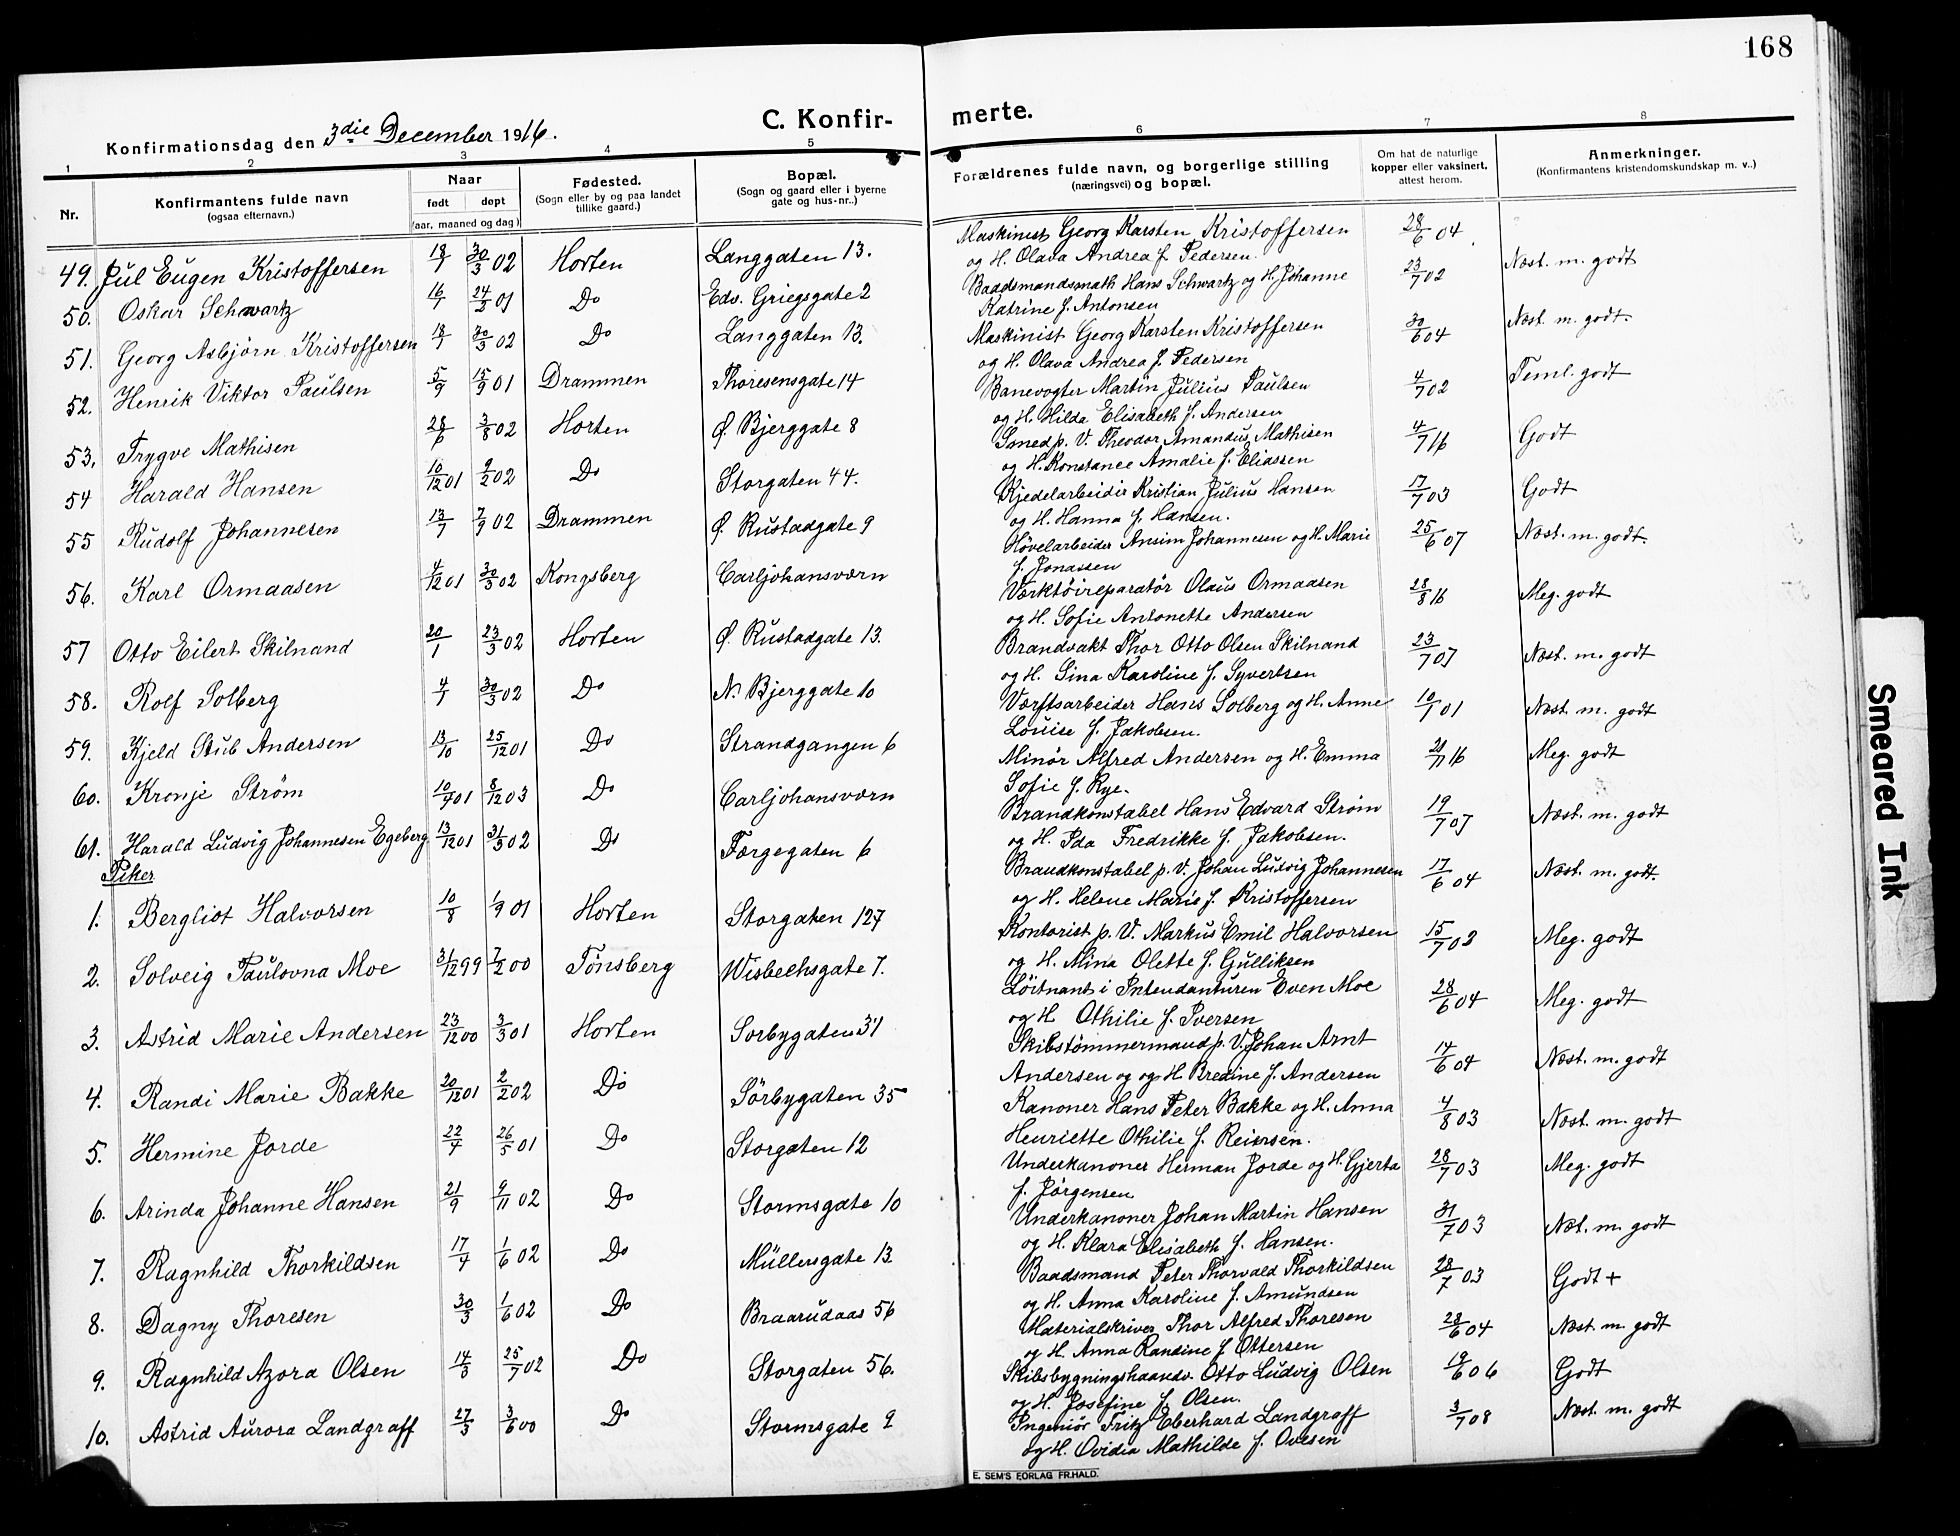 168
C. Konfir-
merte.
Konfirmationsdag den 3die December 1916.
1 2 3 4 5 6 7 8
Nr.
Konfirmantens fulde navn
(ogsaa efternavn.)
Naar
født døpt
(aar, maaned og dag)
Fødested.
(Sogn eller by og paa landet
tillike gaard.)
Bopæl.
(Sogn og gaard eller i byerne
gate og hus-nr..)
Forældrenes fulde navn, og borgerlige stilling
(næringsvei) og bopæl.
Om hat de naturlige
kopper eller vaksinert,
attest herom.
Anmerkninger.
(Konfirmantens kristendomskundskap m. v..)
49. Jul Eugen Kristoffersen 18/1 30/3 02 Horten Langgaten 13. Maskinist Georg Karsten Kristoffersen 28/6 04 Næst. m. godt
og H. Olava Andrea f. Pedersen.
50. Oskar Schwartz 16/1 24/3 01 Do Edv. Griegsgate 2 Baadsmandsmath Hans Schwartz og H. Johanne 23/7 02 Næst. m. godt.
Katrine f. Antonsen
51. Georg Asbjørn Kristoffersen 18/1 30/3 02 Do Langgaten 13. Maskinist Georg Karsten Kristoffersen 30/6 04 Teml. godt
og H. Olava Andrea f. Pedersen
52. Henrik Viktor Paulsen 5/9 15/9 01 Drammen Thoresensgate 14 Banevogter Martin Julius Paulsen 4/7 02
og H. Hilda Elisabeth f. Andersen
53. Trygve Mathisen 28/6 3/8 02 Horten Ø. Bjerggate 8 Smed p. V. Theodor Amandus Mathisen 4/7 16 Godt
og H. Konstance Amalie f. Eliassen
54 Harald Hansen 10/12 01 9/2 02 Do Storgaten 44. Kjedelarbeidir Kristian Julius Hansen 17/7 03 Godt
og H. Hanna f. Hansen.
55 Rudolf Johannesen 13/7 7/9 02 Drammen Ø. Rustadgate 9 Høvelarbeider Ansim Johannesen og H. Marie 25/6 07 Næst. m. godt.
f. Jonassen
56. Karl Ormaasen 4/12 01 30/3 02 Kongsberg Carljohansværn Værktøireparatør Olaus Ormaasen 28/8 16 Meg. godt
og H. Sofie Antonette Andersen
57 Otto Eilert Skilnand 20/1 23/3 02 Horten Ø. Rustadgate 13. Brandvakt Thor Otto Olsen Skilnand 23/7 07 Næst. m. godt
og H. Sina Karoline f. Syvertsen
58. Rolf Solberg 4/1 30/3 02 Do N. Bjerggate 10 Værftsarbeider Hans Solberg og H. Anne 10/7 01 Næst. m. godt
Louise f. Jakobsen.
59. Kjeld Stub Andersen 13/10 25/12 01 Do Strandgangen 6 Minør Alfred Andersen og H. Emma 21/7 16 Meg. godt
Sofie f. Rye.
60. Kronje Strøm 10/7 01 8/12 03 Do Carljohansværn Brandkonstabel Hans Edvard Strøm 19/7 07 Næst. m. godt
og H. Ida Fredrikke f. Jakobsen.
61. Harald Ludvig Johannesen Egeberg 13/12 01 31/3 02 Do Færgegaten 6 Brandkonstabel p. V. Johan Ludvig Johannesen 17/6 04 Næst. m. godt.
og H. Helene Marie f. Kristoffersen
Piker
1. Bergliot Halvorsen 10/8 1/9 01 Horten Storgaten 127 Kontorist p. V. Markus Emil Halvorsen 15/7 03 Meg. godt
og H. Mina Olette f. Gulliksen
2. Solveig Paulovna Moe 31/12 99 7/2 00 Tønsberg Wisbechsgate 7. Løitnant i Intendanturen Even Moe 28/6 04 Meg. godt
og H Othilie f. Iversen
3. Astrid Marie Andersen 23/12 00 3/3 01 Horten Sorbygaten 31 Skibstømmermand p. V. Johan Arnt 14/6 04 Næst. m. godt
Andersen og og H Bredine f. Andersen
4. Randi Marie Bakke 20/12 01 2/2 02 Do Sørbygaten 35 Kanoner Hans Peter Bakke og H. Anna 4/8 03 Næst. m. godt
Henriette Othilie f. Reiersen.
5. Hermine Jorde 22/4 26/5 01 Do Storgaten 12 Underkanoner Herman Jorde og H. Gjerta 28/7 03 Meg. godt
f. Jørgensen
6. Arinda Johanne Hansen 21/9 9/11 02 Do Stormsgate 10 Underkanoner Johan Martin Hansen 31/7 03 Næt. m. godt
og H. Klara Elisabeth f. Hansen.
7. Ragnhild Thorkildsen 17/4 1/6 02 Do Müllersgate 13. Baadsmand Peter Thorvald Thorkildsen 28/7 03 Godt +
og H. Anna Karoline f. Amundsen
8. Dagny Thoresen 30/3 1/6 02 Do Braarudaas 56 Materialskriver Thor Alfred Thoresen 28/6 04 Næst m. godt
og H. Anna Randine f. Ottersen
9. Ragnhild Azora Olsen 14/3 25/7 02 Do Storgaten 56. Skibsbygningshaandv. Otto Ludvig Olsen 19/6 06 Godt
og H. Josefine f. Olsen.
10. Astrid Aurora Landgraff 27/3 3/6 00 Do Stormsgate 9 Ingeniør Fritz Eberhard Landgraff 3/7 08 Næst. m. godt
og H. Ovidia Mathilde f. Ovesen
E. SEM'S FORLAG FR.HALD.
Smeared Ink